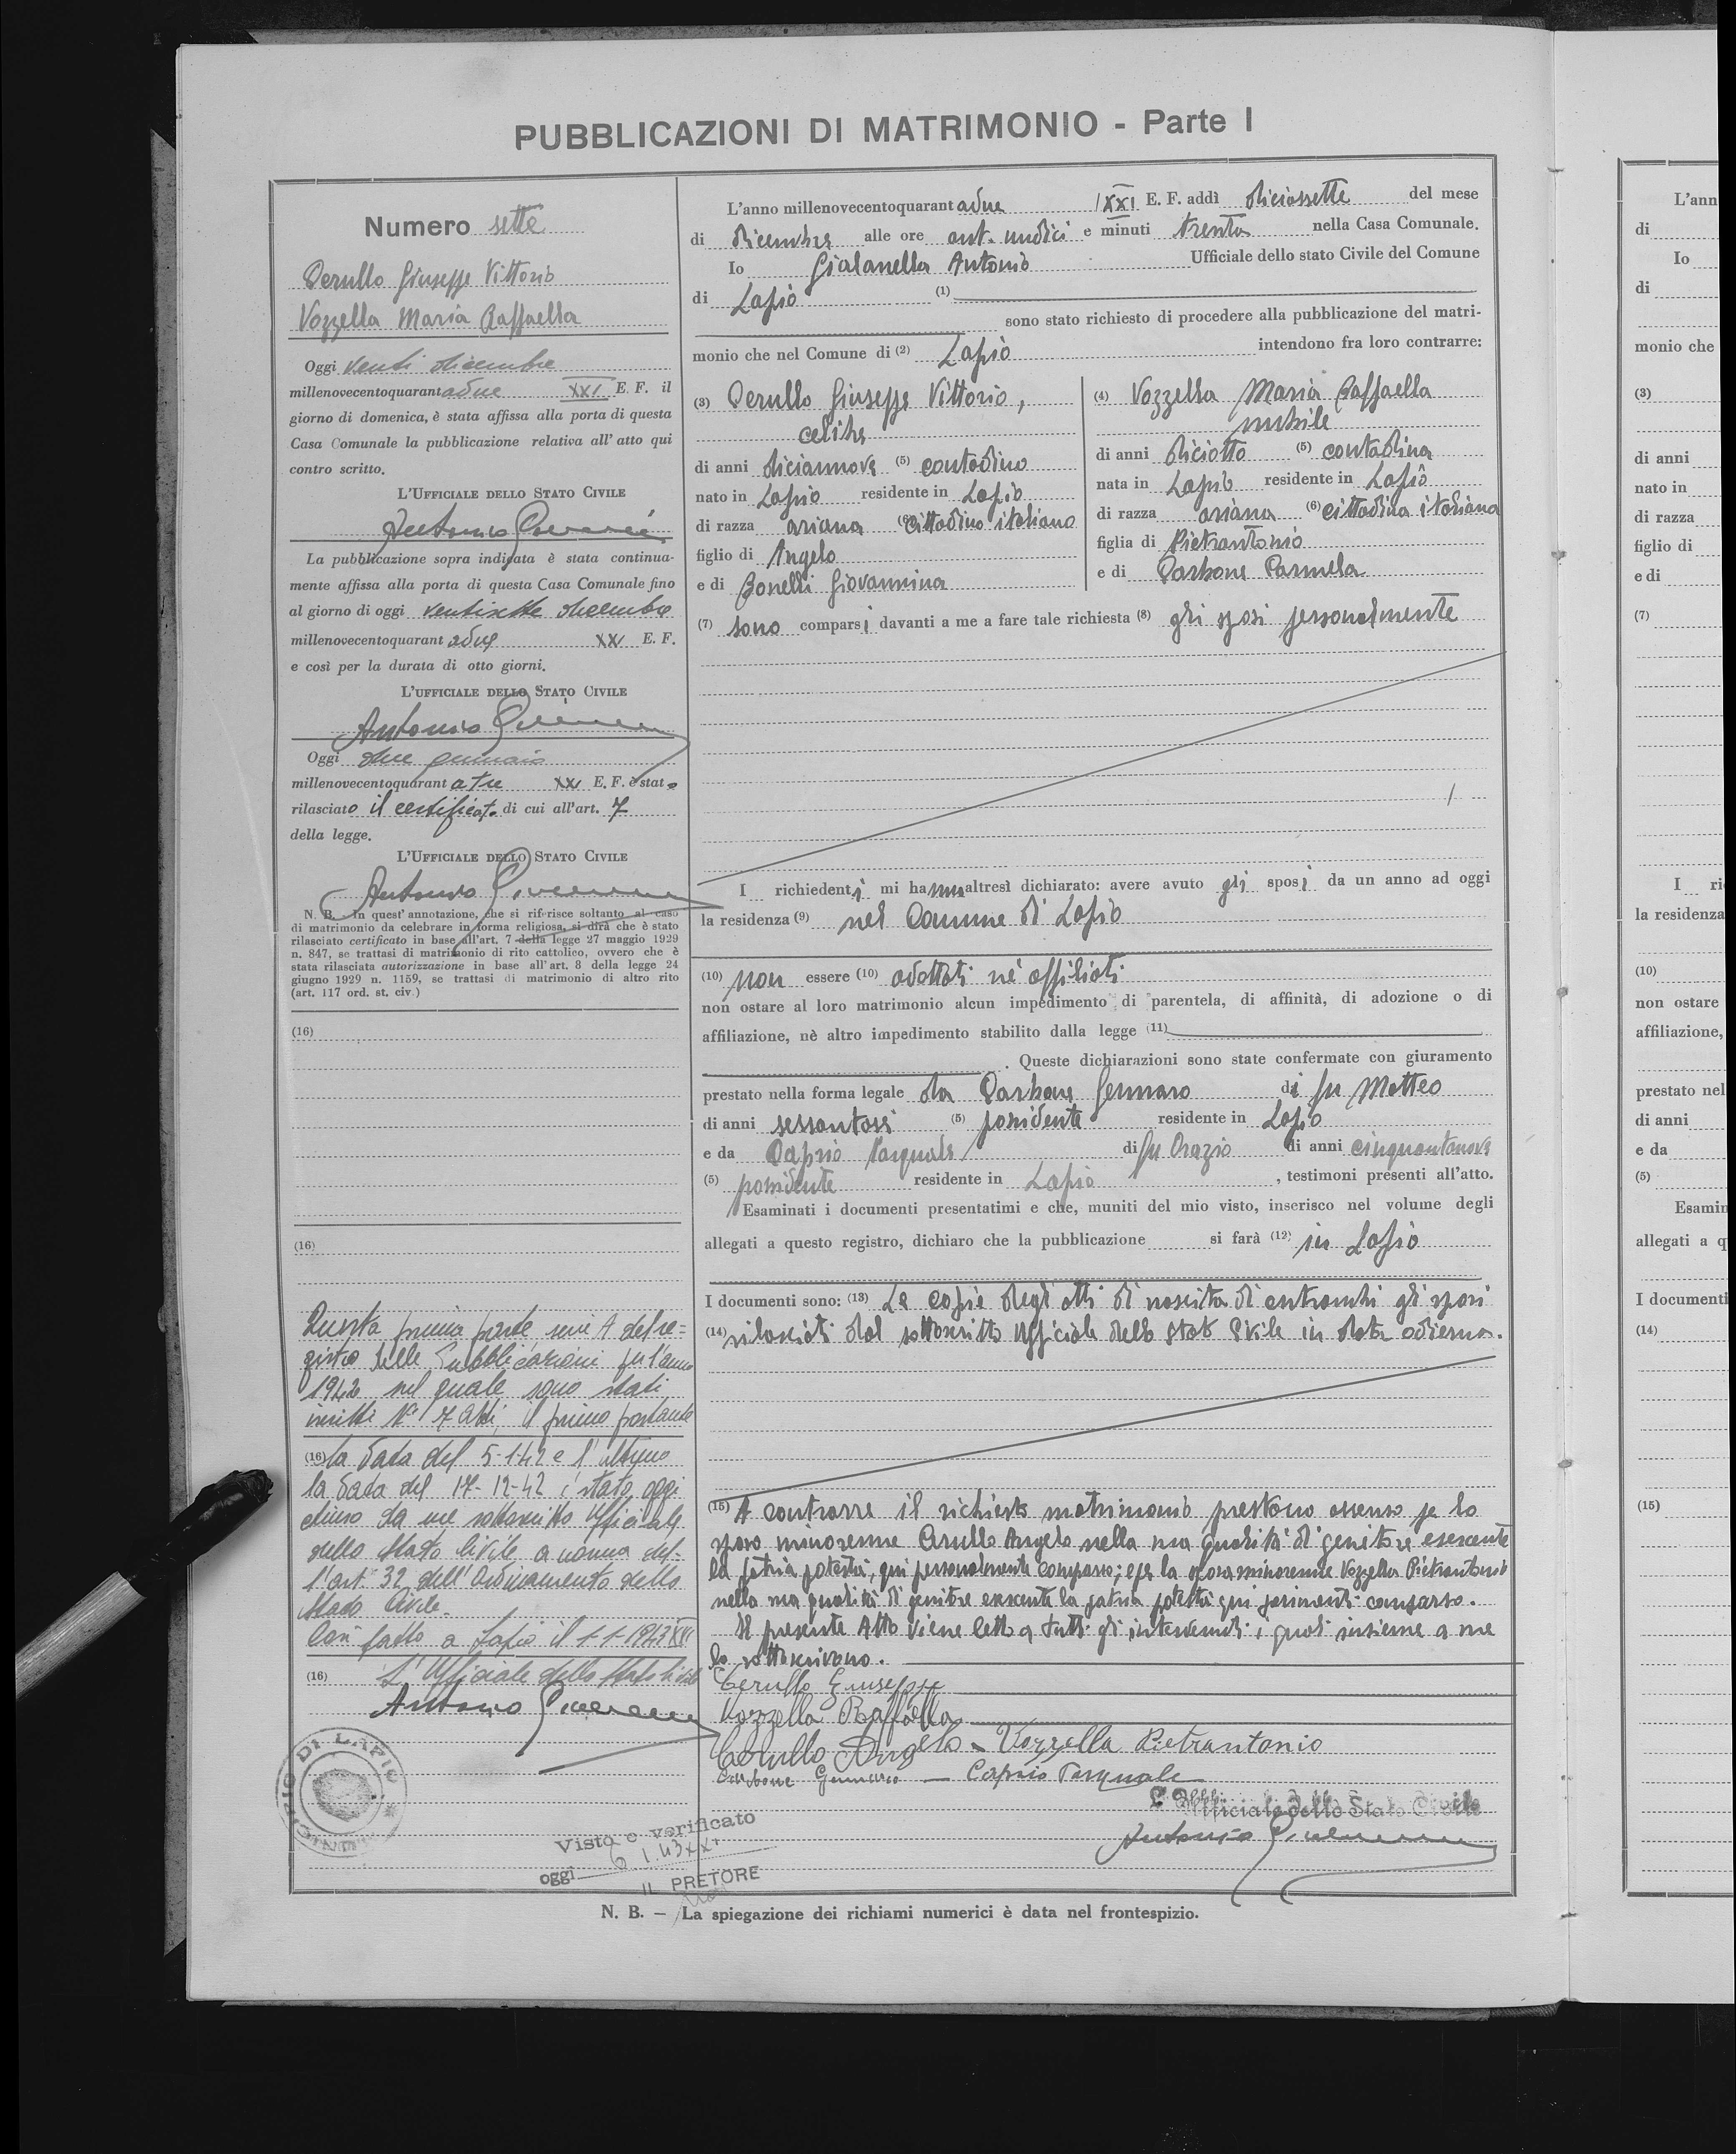 PUBBLICAZIONI DI MATRIMONIO - Parte I
Numero sette
Cerullo Giuseppe Vittorio
Vozzella Maria Raffaella
Oggi venti dicembre
millenovecentoquarantadue XXI E. F. il
giorno di domenica, è stata affissa alla porta di questa
Casa Comunale la pubblicazione relativa all' atto qui
contro scritto.
L'UFFICIALE DELLO STATO CIVILE
Antonio
La pubblicazione sopra indicata è stata continua-
mente affissa alla porta di questa Casa Comunale fino
al giorno di oggi ventisette dicembre
millenovecentoquarantadue XXI E. F.
e così per la durata di otto giorni.
L'UFFICIALE DELLO STATO CIVILE
Antonio
Oggi due gennaio
millenovecentoquarantatre XXI E. F. è stato
rilasciato il certificato di cui all'art. 7
della legge.
L'UFFICIALE DELLO STATO CIVILE
Antonio
N. B. In quest' annotazione, che si riferisce soltanto al caso
di matrimonio da celebrare in forma religiosa, si dirà che è stato
rilasciato certificato in base all'art. 7 della legge 27 maggio 1929
n. 847, se trattasi di matrimonio di rito cattolico, ovvero che è
stata rilasciata autorizzazione in base all'art. 3 della legge 24
giugno 1929 n. 1159, se trattasi di matrimonio di altro rito
(art. 117 ord. st. civ.)
(16)
(16)
Questa prima parte serie A del re=
gistro delle Pubblicazioni per l'anno
1942 nel quale sono stati
iscritti N° 7 atti, il primo portante
(16) la data del 5-1-42 e l'ultimo
la data del 17-12-42 è stato oggi
chiuso da me sottoscritto Ufficiale
dello Stato Civile a norma del-
l'art. 32 dell'Ordinamento dello
Stato Civile.
Così fatto a Lapio il 1-1-1943 XXI
(16) L'Ufficiale dello Stato Civile
Antonio
DI LAPIO
Visto e verificato
oggi 6.1.43 XXI
IL PRETORE
L'anno millenovecentoquarantadue / XXI E. F. addì diciassette del mese
di dicembre alle ore ant. undici e minuti trenta nella Casa Comunale.
Io Gialanella Antonio Ufficiale dello stato Civile del Comune
di Lapio (1)
sono stato richiesto di procedere alla pubblicazione del matri-
monio che nel Comune di (2) Lapio intendono fra loro contrarre:
(3) Cerullo Giuseppe Vittorio,
celibe
di anni diciannove (5) contadino
nato in Lapio residente in Lapio
di razza ariana (6) cittadino italiano
figlio di Angelo
e di Bonelli Giovannina
(4) Vozzella Maria Raffaella
nubile
di anni diciotto (5) contadina
nata in Lapio residente in Lapio
di razza ariana (6) cittadina italiana
figlia di Pietrantonio
e di Carbone Carmela
(7) sono comparsi davanti a me a fare tale richiesta (8) gli sposi personalmente
I richiedenti mi hanno altresì dichiarato: avere avuto gli sposi da un anno ad oggi
la residenza (9) nel Comune di Lapio
(10) non essere (10) adottati nè affiliati
non ostare al loro matrimonio alcun impedimento di parentela, di affinità, di adozione o di
affiliazione, nè altro impedimento stabilito dalla legge (11)
. Queste dichiarazioni sono state confermate con giuramento
prestato nella forma legale da Carbone Gennaro di fu Matteo
di anni sessantasei (5) possidente residente in Lapio
e da Caprio Pasquale di fu Orazio di anni cinquantanove
(5) possidente residente in Lapio, testimoni presenti all'atto.
Esaminati i documenti presentatimi e che, muniti del mio visto, inserisco nel volume degli
allegati a questo registro, dichiaro che la pubblicazione si farà (12) in Lapio
I documenti sono: (13) Le copie degli atti di nascita di entrambi gli sposi
(14) rilasciati dal sottoscritto Ufficiale dello Stato Civile in data odierna.
(15) A contrarre il richiesto matrimonio prestano assenso pe lo
sposo minorenne Cerullo Angelo nella sua qualità di genitore esercente
la patria potestà, qui personalmente comparso; e pe la sposa minorenne Vozzella Pietrantonio
nella sua qualità di genitore esercente la patria potestà qui parimenti comparso.
Il presente Atto viene letto a tutti gli intervenuti, i quali insieme a me
lo sottoscrivono.
Cerullo Giuseppe
Vozzella Raffaella
Cerullo Angelo - Vozzella Pietrantonio
Carbone Gennaro - Caprio Pasquale
L'Ufficiale dello Stato Civile
Antonio
N. B. - La spiegazione dei richiami numerici è data nel frontespizio.
L'ann
di
Io
di
monio che
(3)
di anni
nato in
di razza
figlio di
e di
(7)
I ri
la residenza
(10)
non ostare
affiliazione,
prestato nel
di anni
e da
(5)
Esamin
allegati a q
I documenti
(14)
(15)